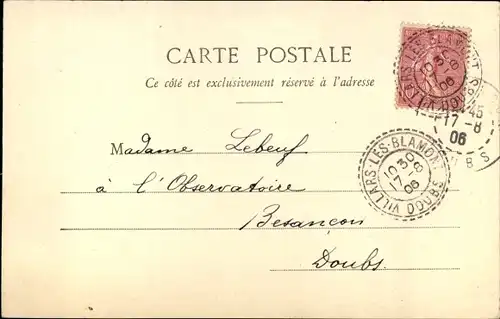 CARTE POSTALE
Ce côté est exclusivement réservé à l'adresse
Madame Lebeuf
à l'Observatoire
Besançon
Doubs.
VILLARS-LES-BLAMONT DOUBS
10 30
17 -8
06
VILLARS-LES-BLAMONT
10 3
06
17 -8
06